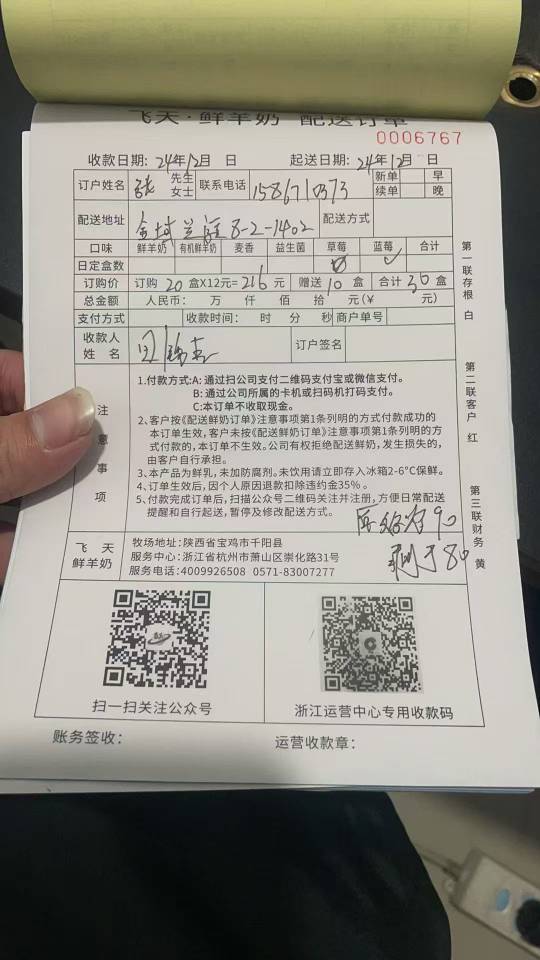 飞天·鲜羊奶 配送订单
0006767
收款日期: 24年12月 日 起送日期: 24年12月 日
订户姓名 张 先生 女士 联系电话 新单 早
续单 晚
配送地址 8-2-1402 配送方式
口味 鲜羊奶 有机鲜羊奶 麦香 益生菌 草莓 蓝莓 合计
日定盒数
订购价 订购 20 盒X12元= 216 元 赠送 10 盒 合计 30 盒
总金额 人民币: 万 仟 佰 拾 元(￥ 元)
支付方式 收款时间: 时 分 秒 商户单号
收款人姓名 订户签名
注意事项
1.付款方式:A: 通过扫公司支付二维码支付宝或微信支付。
B: 通过公司所属的卡机或扫码机打码支付。
C:本订单不收取现金。
2、客户按《配送鲜奶订单》注意事项第1条列明的方式付款成功的
本订单生效，客户未按《配送鲜奶订单》注意事项第1条列明方式付
款的，本订单不生效。公司有权拒绝配送鲜奶，发生损失的，
由客户自行承担。
3、本产品为鲜乳，未加防腐剂。未饮用请立即存入冰箱2-6°C保鲜。
4、订单生效后，因个人原因退款扣除违约金35%。
5、付款完成订单后，扫描公众号二维码关注并注册，方便日常配送
提醒和自行起送，暂停及修改配送方式。
90
80
第一联存根 白
第二联客户 红
第三联财务 黄
飞天鲜羊奶
牧场地址:陕西省宝鸡市千阳县
服务中心:浙江省杭州市萧山区崇化路31号
服务电话:4009926508 0571-83007277
扫一扫关注公众号 浙江运营中心专用收款码
账务签收: 运营收款章: